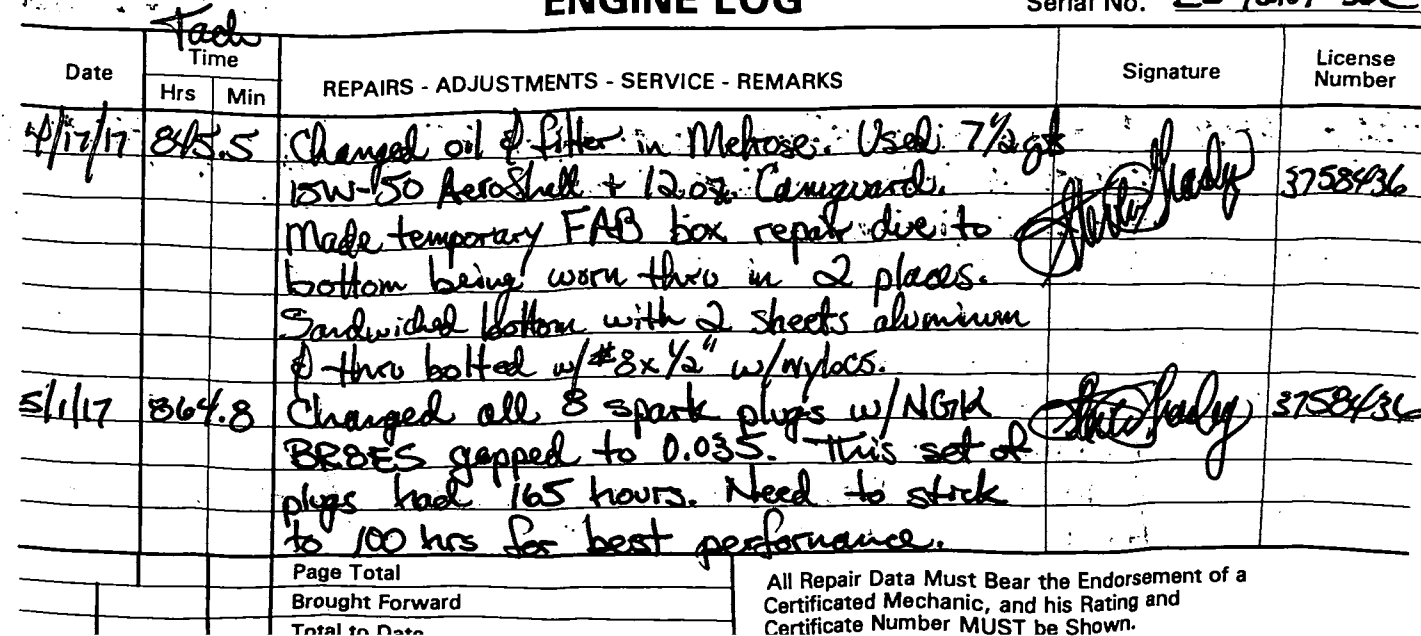 ENGINE LOG
Serial No.
Tach
Date Time Hrs Min REPAIRS - ADJUSTMENTS - SERVICE - REMARKS Signature License Number
4/17/17 845.5 Changed oil & filter in Melrose. Used 7 1/2 qts
15W-50 AeroShell + 12 oz. Camguard. 3758436
Made temporary FAB box repair due to
bottom being worn thru in 2 places.
Sandwiched bottom with 2 sheets aluminum
& thru bolted w/ #8x 1/2" w/nylocs.
5/1/17 864.8 Changed all 8 spark plugs w/NGK 3758436
BR8ES gapped to 0.035. This set of
plugs had 165 hours. Need to stick
to 100 hrs for best performance.
Page Total
Brought Forward
Total to Date
All Repair Data Must Bear the Endorsement of a
Certificated Mechanic, and his Rating and
Certificate Number MUST be Shown.